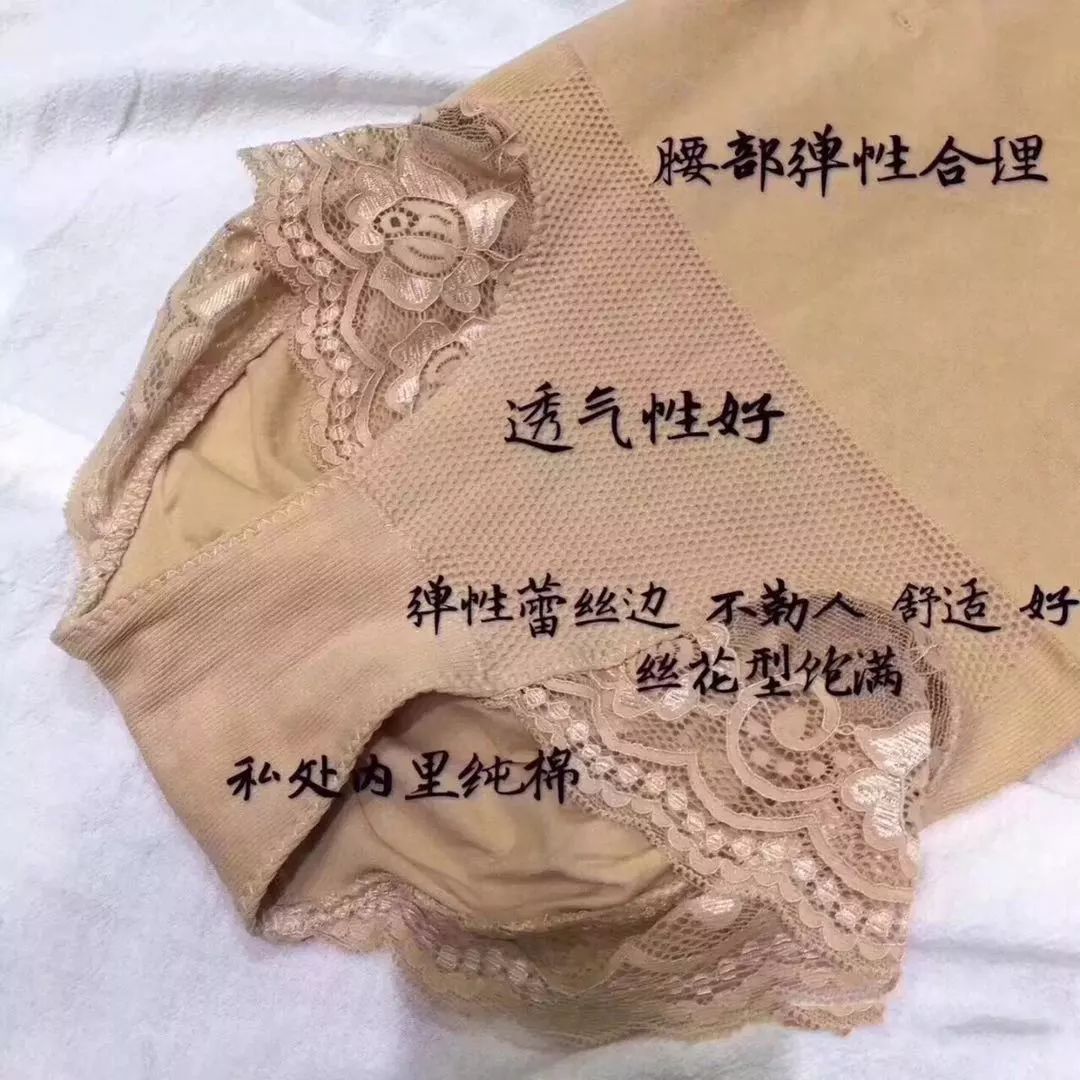 腰部弹性合理
透气性好
弹性蕾丝边 不勒人 舒适 好
丝花型饱满
私处内里纯棉